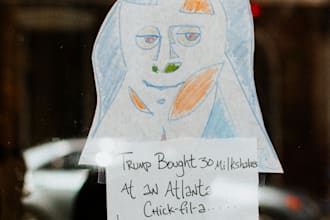 Trump Bought 30 Milkshakes
At an Atlanta
Chick-fil-a.....